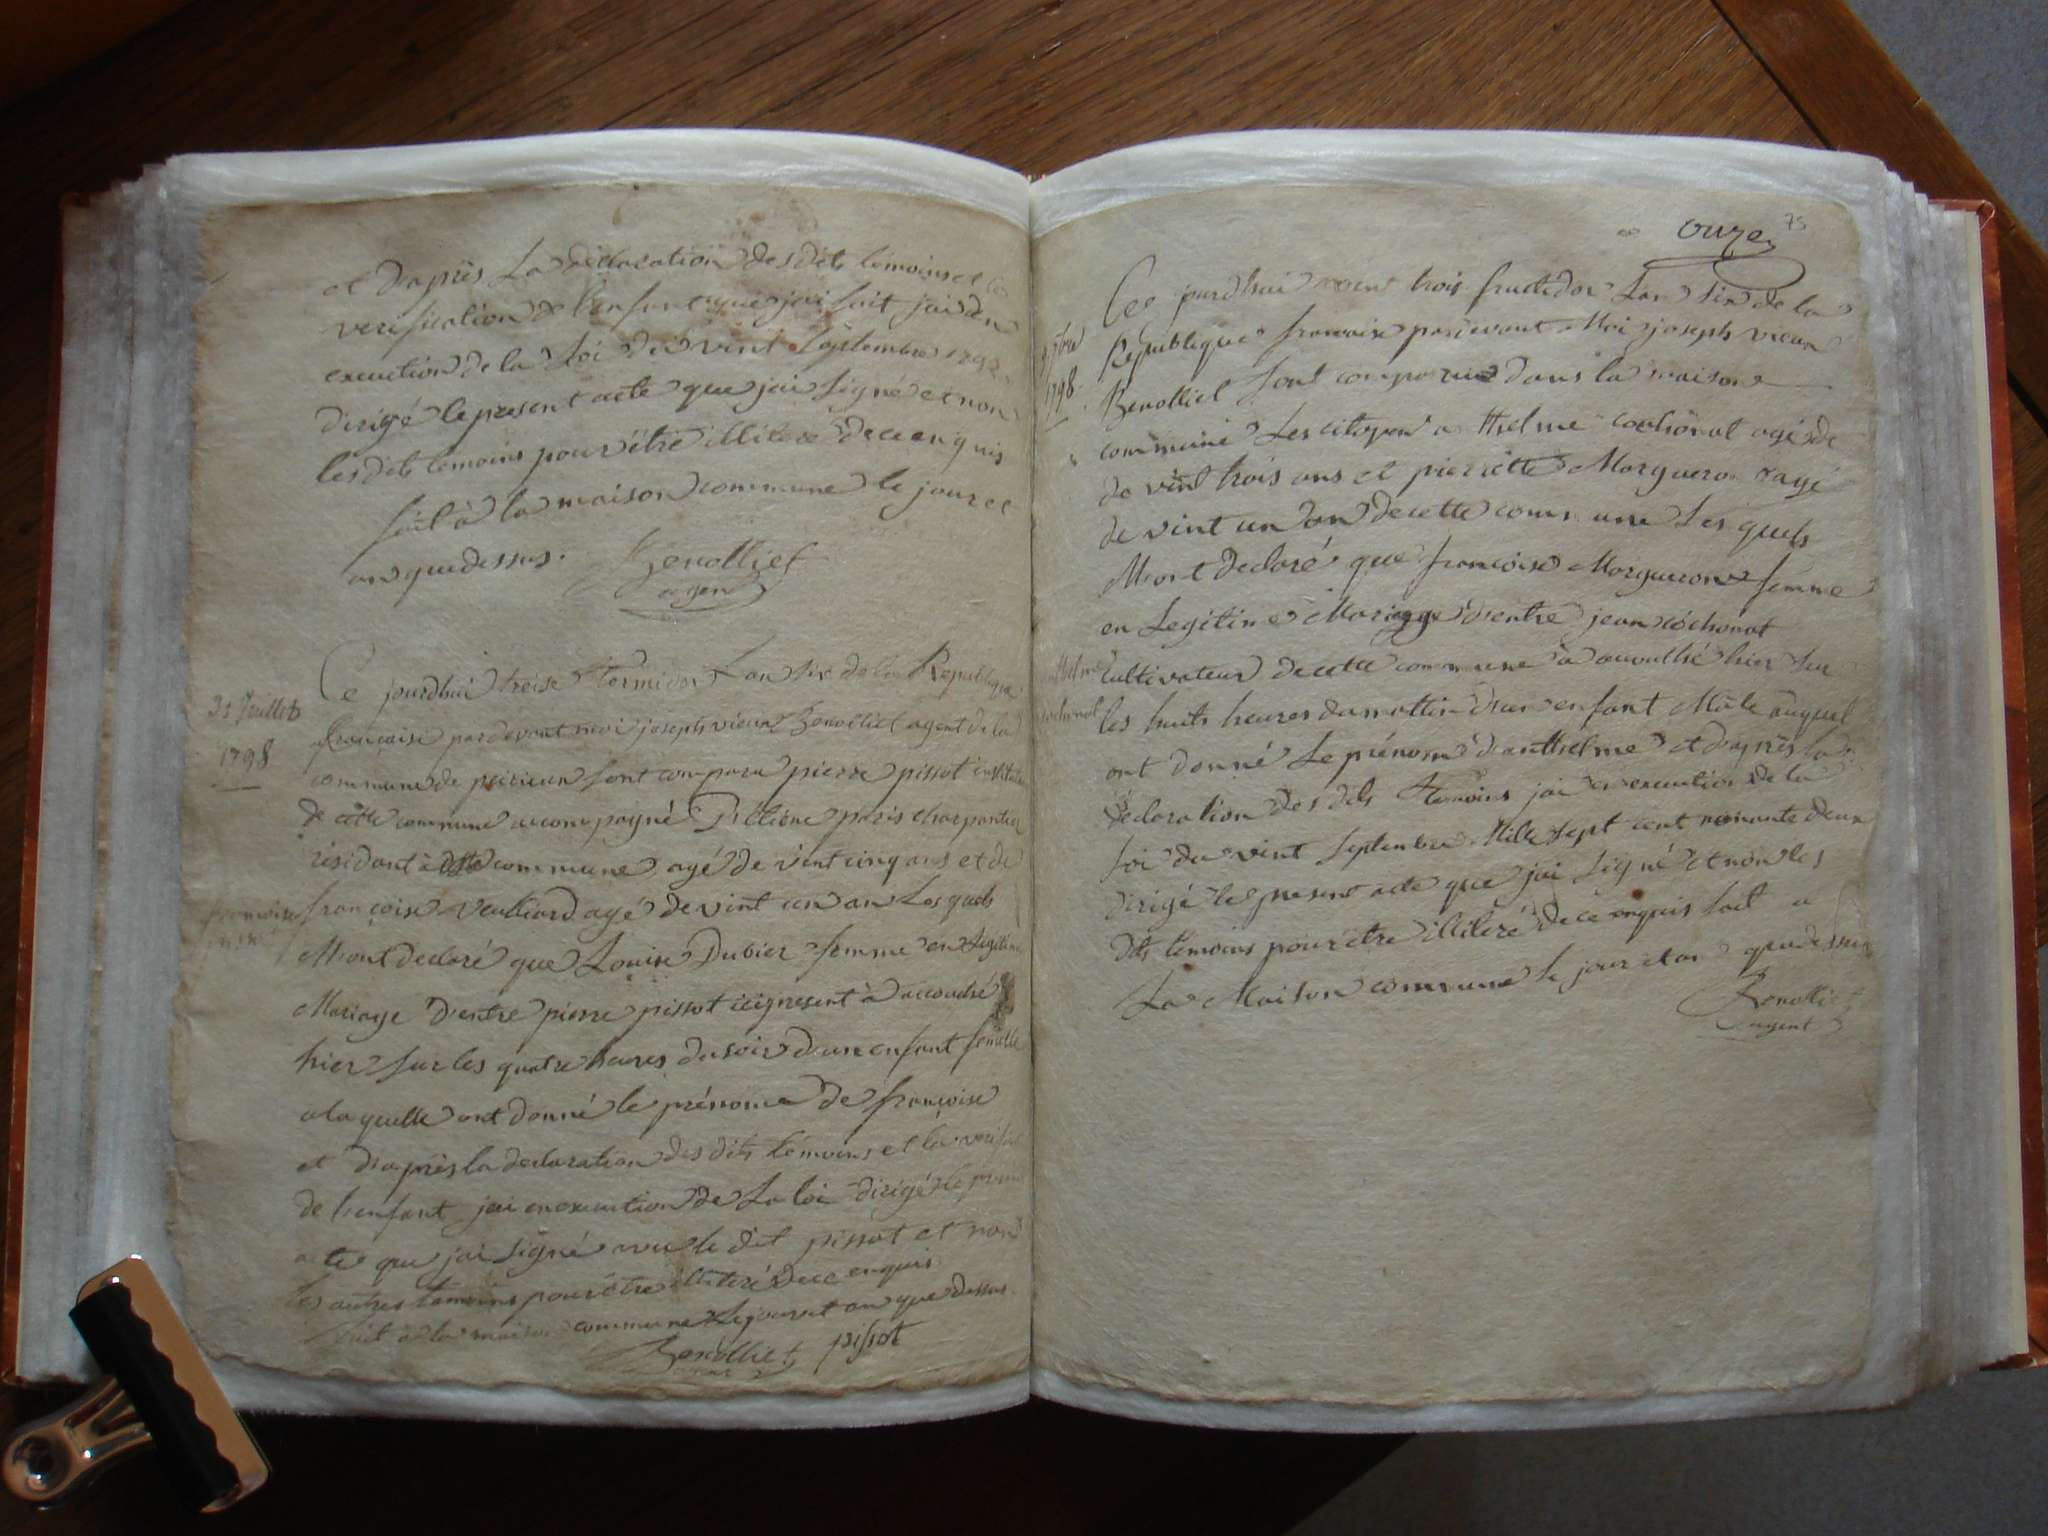 et Daprès La déclaration des dits témoins et la
verification de lenfant que jai fait jai en
execution de la Loi du vint Septembre 1792
dirigé le present acte que jai Signé et non
les dits temoins pour être illiteré de ce enquis
fait à la maison commune le jour et
an que dessus.
Benolliet
agent
31 Juillet
1798
Ce jourdhui treise termidor Lan six de la Republique
francaise pardevant moi joseph vieux Benolliet agent de la
commune de peirieux sont comparu pierre pissot
de cette commune accompagné Détiene paris charpantier
résidant à cette commune agé de vint cinq ans et de
francoise
françoise Veulliard agé de vint un an Les quels
Mont declaré que Louise Dubier femme en Légitime
Mariage dentre pierre pissot ici present à accouché
hier sur les quatre heures du soir dun enfant femelle
a la quelle ont donné le prénome de françoise
et daprès la declaration des dits témoins et la
de lenfant jai en execution de La loi dirigé le present
acte que jai signé avec le dit pissot et non
les autres témoins pour être illiteré de ce enquis
fait à la maison commune le jour et an que dessus.
Benolliet pissot
75
onze
9 7bre
1798
Ce jourdhui vint trois fructidor Lan six de la
Republique francaise pardevant Moi joseph vieux
Benolliet sont comparus dans la maison
commune Les citoyen anthelme cochonat agés de
de vint trois ans et pierrette Morgueron agé
de vint un an de cette commune Les quels
Mont declaré que francoise Morgueron femme
en Legitime Mariage dentre jean cochonat
anthelme
cochonat
cultivateur de cette commune a accouché hier sur
les huits heures du mattin dun enfant Mâle auquel
ont donné Le prénom danthelme et daprès la
declaration des dits témoins jai en execution de la
Loi du vint Septembre Mille Sept cent nonante deux
dirigé le present acte que jai Signé et non les
dits temoins pour être illiteré de ce enquis fait a
La Maison commune le jour et an que dessus
Benolliet
agent